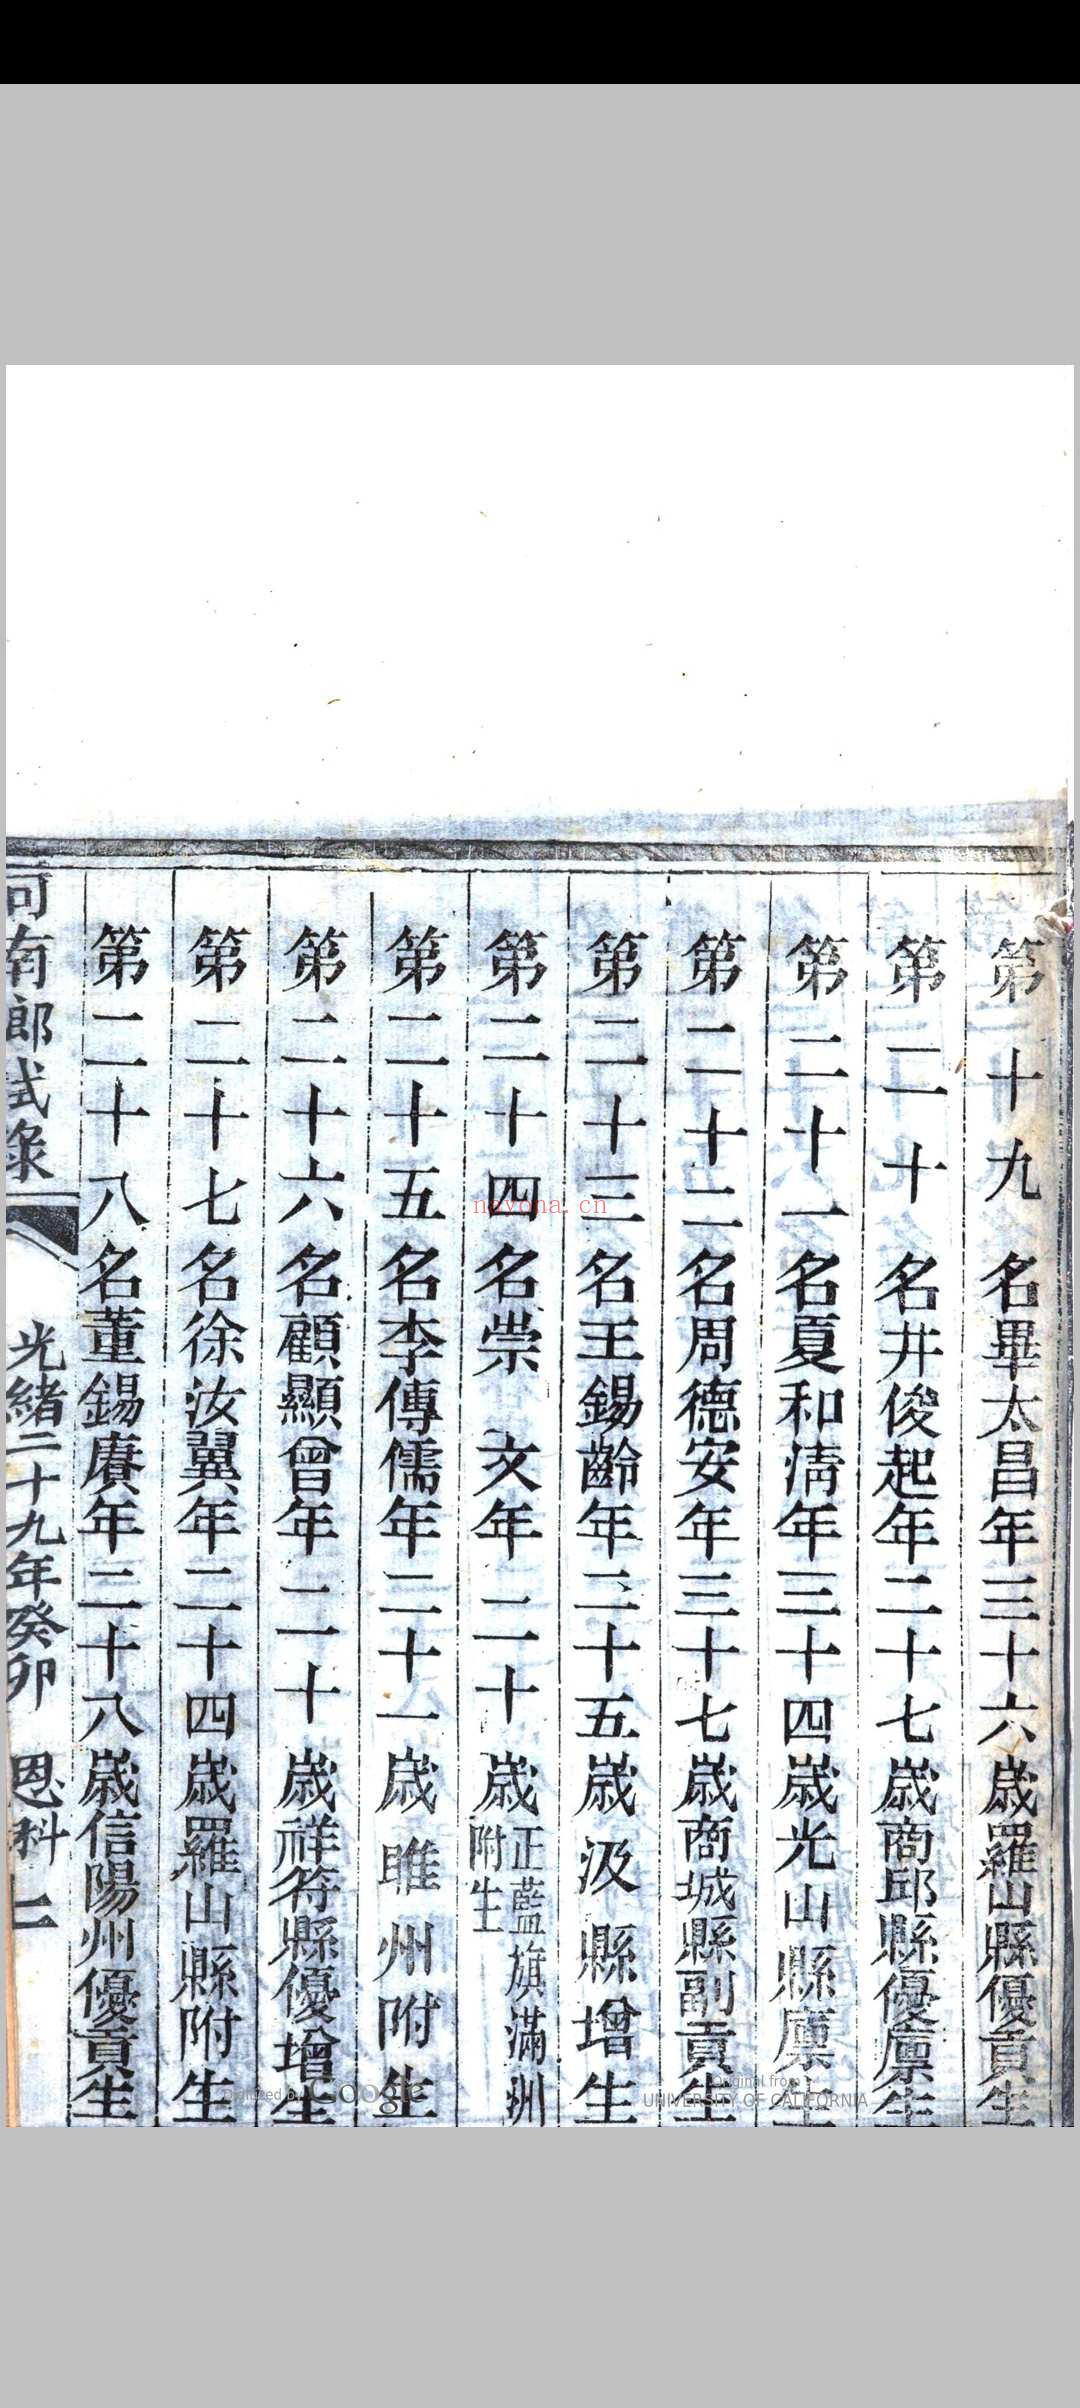 第十九名畢太昌年三十六歲羅山縣優貢生
第二十名井俊起年二十七歲商邱縣優廩生
第二十一名夏和清年三十四歲光山縣廩生
第二十二名周德安年三十七歲商城縣副貢生
第二十三名王錫齡年二十五歲汲縣增生
第二十四名崇文年二十歲正藍旗滿洲附生
第二十五名李傳儒年二十一歲睢州附生
第二十六名顧顯曾年二十歲祥符縣優增生
第二十七名徐汝翼年二十四歲羅山縣附生
第二十八名董錫賡年三十八歲信陽州優貢生
河南鄉試錄 光緒二十九年癸卯 恩科 二
navona.cn
Digitized by Google
Original from
UNIVERSITY OF CALIFORNIA